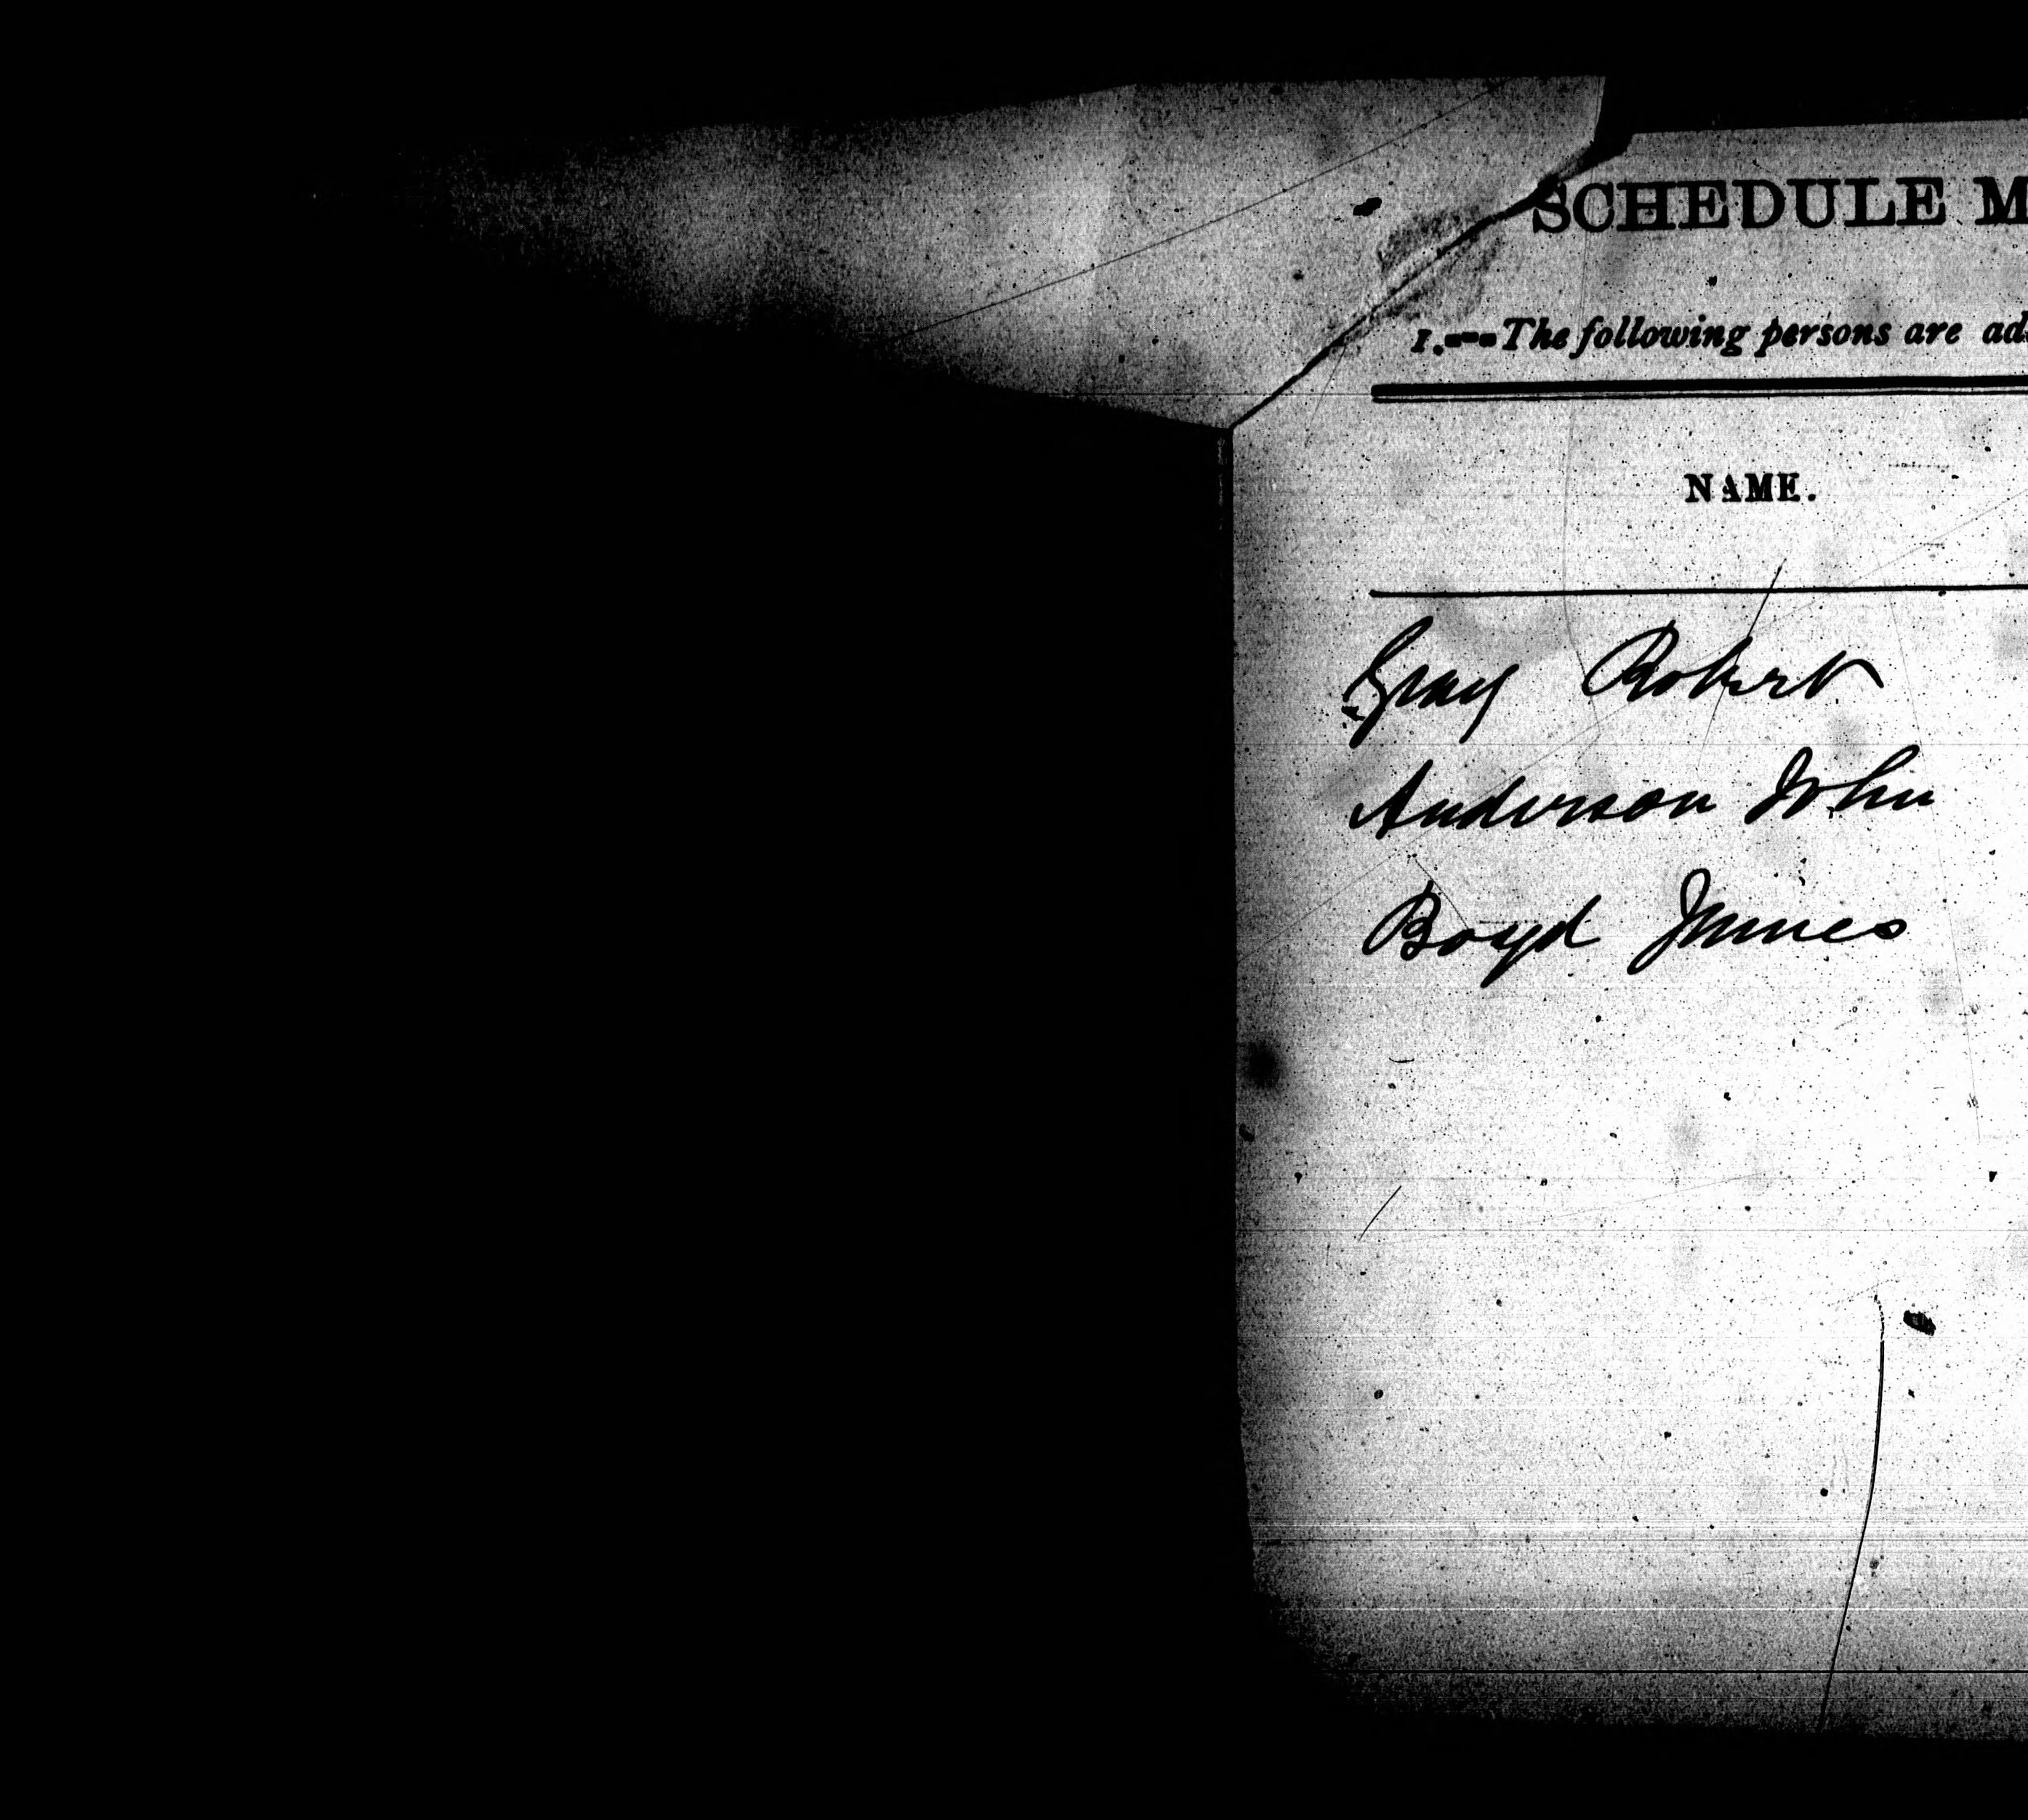 SCHEDULE M
1.---The following persons are ad
NAME.
Gray Robert
Anderson John
Boyd James